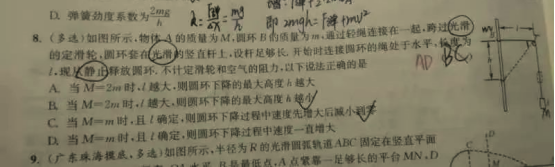 D. 弹簧劲度系数为2mg/h
8. (多选)如图所示,物体A的质量为M,圆环B的质量为m,通过轻绳连接在一起,跨过光滑
的定滑轮,圆环套在光滑的竖直杆上,设杆足够长,开始时连接圆环的绳处于水平,长度为
l,现从静止释放圆环,不计定滑轮和空气的阻力,以下说法正确的是
A. 当M=2m时,l越大,则圆环下降的最大高度h越大
B. 当M=2m时,l越大,则圆环下降的最大高度h越小
C. 当M=m时,且l确定,则圆环下降过程中速度先增大后减小到零
D. 当M=m时,且l确定,则圆环下降过程中速度一直增大
9. (广东珠海摸底,多选)如图所示,半径为R的光滑圆弧轨道ABC固定在竖直平面
AD